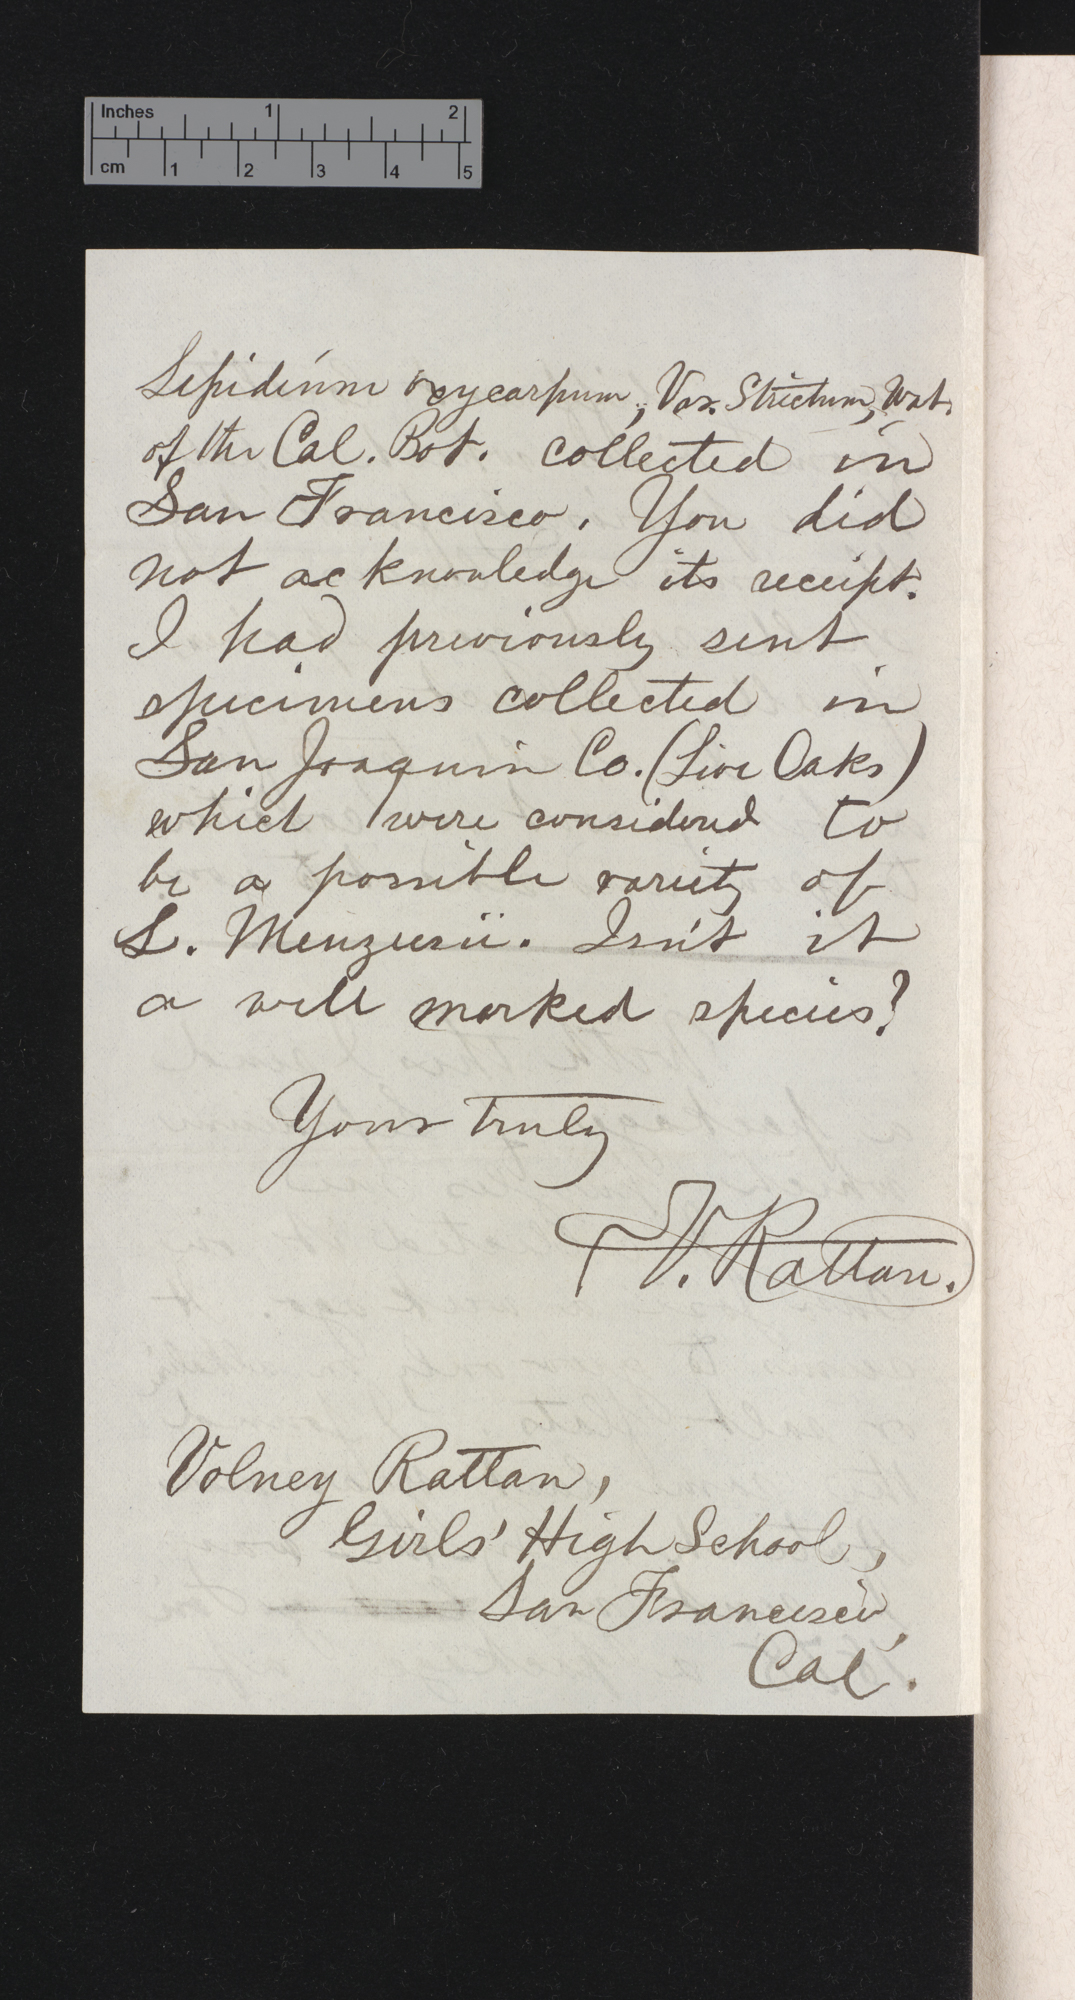 Inches 1 2
cm 1 2 3 4 5
Lepidium oxycarpum, Var. Strictum, Wat.
of the Cal. Bot. collected in
San Francisco. You did
not acknowledge its receipt.
I had previously sent
specimens collected in
San Joaquin Co. (Live Oaks)
which were considered to
be a possible variety of
L. Menziesii. Isn't it
a well marked species?
Yours truly
V. Rattan.
Volney Rattan,
Girls' High School,
San Francisco,
Cal.